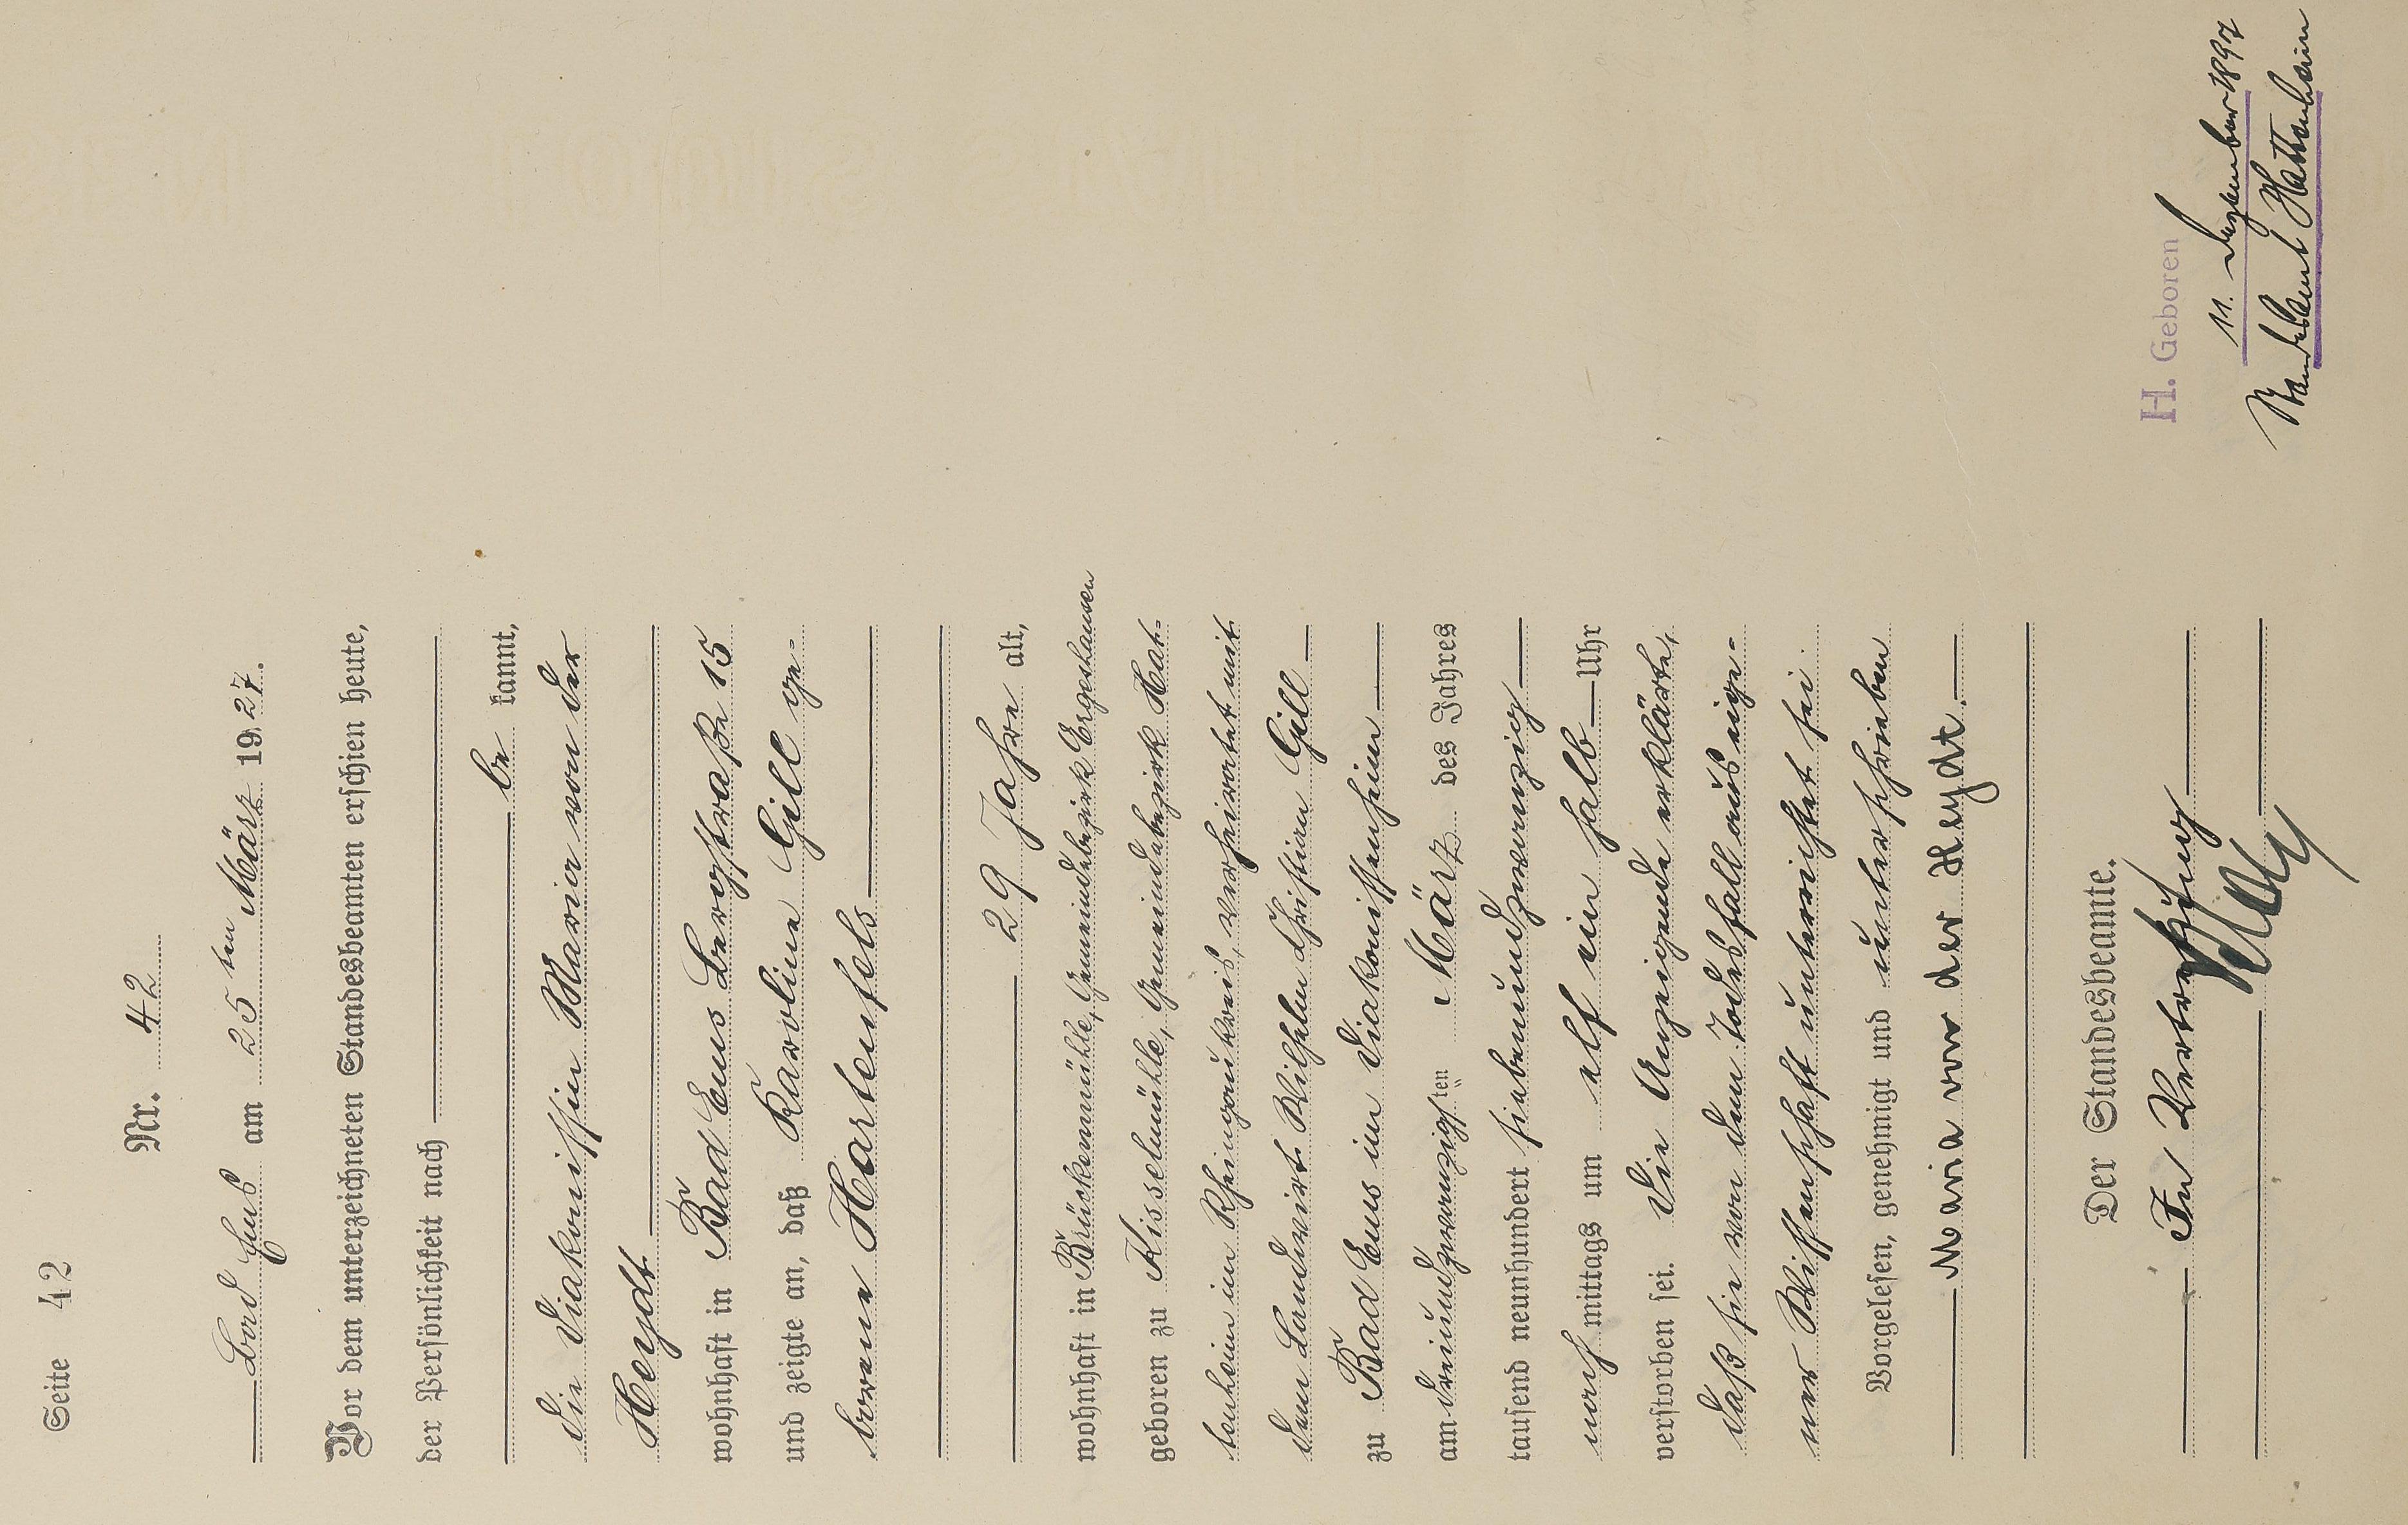 Seite 42
Nr. 42
Bad Ems am 25ten März 1927.
Vor dem unterzeichneten Standesbeamten erschien heute,
der Persönlichkeit nach
be kannt,
die Diakonissin Maria von der
Heydt
wohnhaft in Bad Ems Bergstraße 15
und zeigte an, daß Karoline Gill ge-
borene Hartenfels
29 Jahre alt,
wohnhaft in Brückenmühle, Gemeindebezirk Ergeshausen
geboren zu Kisselmühle, Gemeindebezirk Hat-
tenheim im Rheingaukreis, verheiratet mit
dem Landwirt Wilhelm Christian Gill
zu Bad Ems im Diakonissenheim
am dreiundzwanzigsten März des Jahres
tausend neunhundert siebenundzwanzig
nach mittags um elf ein halb Uhr
verstorben sei. Die Anzeigende erklärte,
daß sie von dem Todesfall aus eige-
ner Wissenschaft unterrichtet sei.
Vorgelesen, genehmigt und unterschrieben
Maria von der Heydt.
Der Standesbeamte.
In Vertretung
H. Geboren
11. Dezember 1897
Standesamt Hattenheim